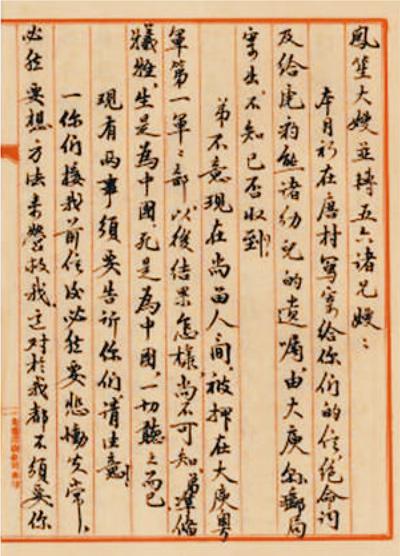 鳳笙大嫂並轉五六諸兄嫂：
本月初在唐村寫寄給你們的信、絕命詞
及給虎豹熊諸幼兒的遺囑，由大庾縣郵局
寄出，不知已否收到？
弟不意現在尚留人間，被押在大庾粵
軍第一軍々部，以後結果怎樣，尚不可知，弟準備
犧牲，生是為中國，死是為中國，一切聽之而已
現有兩事須要告訴你們，請注意！
一你們接我前信後必然要悲慟失常，
必然要想方法來營救我，這對於我都不須要你